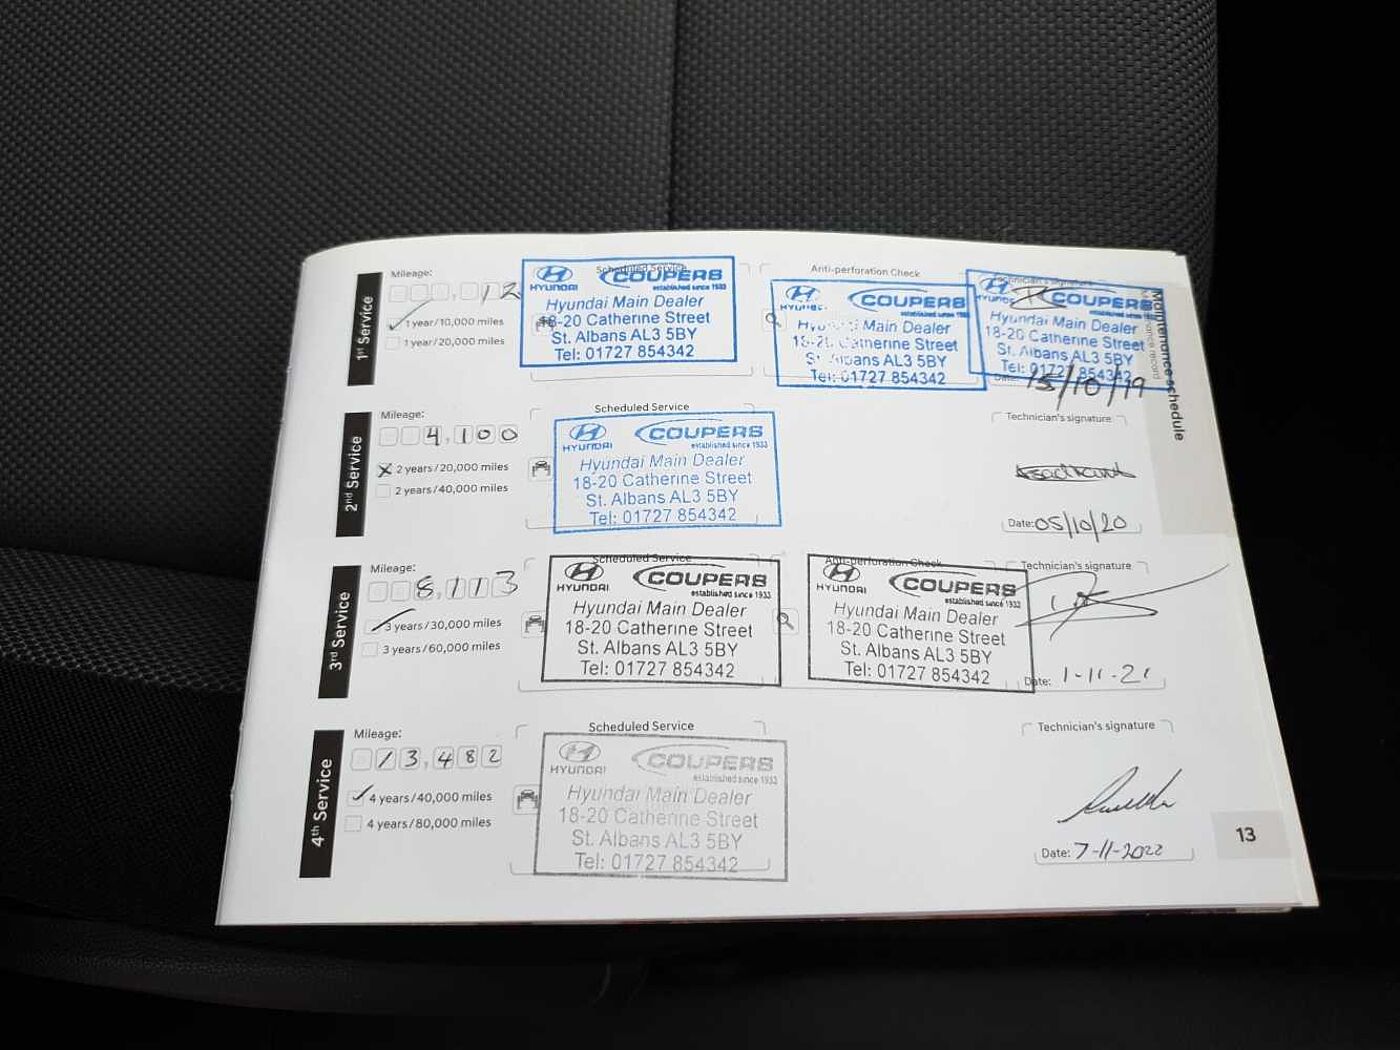 1st Service
Mileage:
12
1 year/10,000 miles
1 year/20,000 miles
Scheduled Service
HYUNDAI
COUPERS
established since 1933
Hyundai Main Dealer
18-20 Catherine Street
St. Albans AL3 5BY
Tel: 01727 854342
Anti-perforation Check
HYUNDAI
COUPERS
established since 1933
Hyundai Main Dealer
18-20 Catherine Street
St. Albans AL3 5BY
Tel: 01727 854342
Technician's signature
HYUNDAI
COUPERS
established since 1933
Hyundai Main Dealer
18-20 Catherine Street
St. Albans AL3 5BY
Tel: 01727 854342
Date: 15/10/19
Maintenance schedule
Maintenance record
2nd Service
Mileage:
4,100
2 years/20,000 miles
2 years/40,000 miles
Scheduled Service
HYUNDAI
COUPERS
established since 1933
Hyundai Main Dealer
18-20 Catherine Street
St. Albans AL3 5BY
Tel: 01727 854342
Technician's signature
Date: 05/10/20
3rd Service
Mileage:
8,113
3 years/30,000 miles
3 years/60,000 miles
Scheduled Service
HYUNDAI
COUPERS
established since 1933
Hyundai Main Dealer
18-20 Catherine Street
St. Albans AL3 5BY
Tel: 01727 854342
Anti-perforation Check
HYUNDAI
COUPERS
established since 1933
Hyundai Main Dealer
18-20 Catherine Street
St. Albans AL3 5BY
Tel: 01727 854342
Technician's signature
Date: 1-11-21
4th Service
Mileage:
13,482
4 years/40,000 miles
4 years/80,000 miles
Scheduled Service
HYUNDAI
COUPERS
established since 1933
Hyundai Main Dealer
18-20 Catherine Street
St. Albans AL3 5BY
Tel: 01727 854342
Technician's signature
Date: 7-11-2022
13